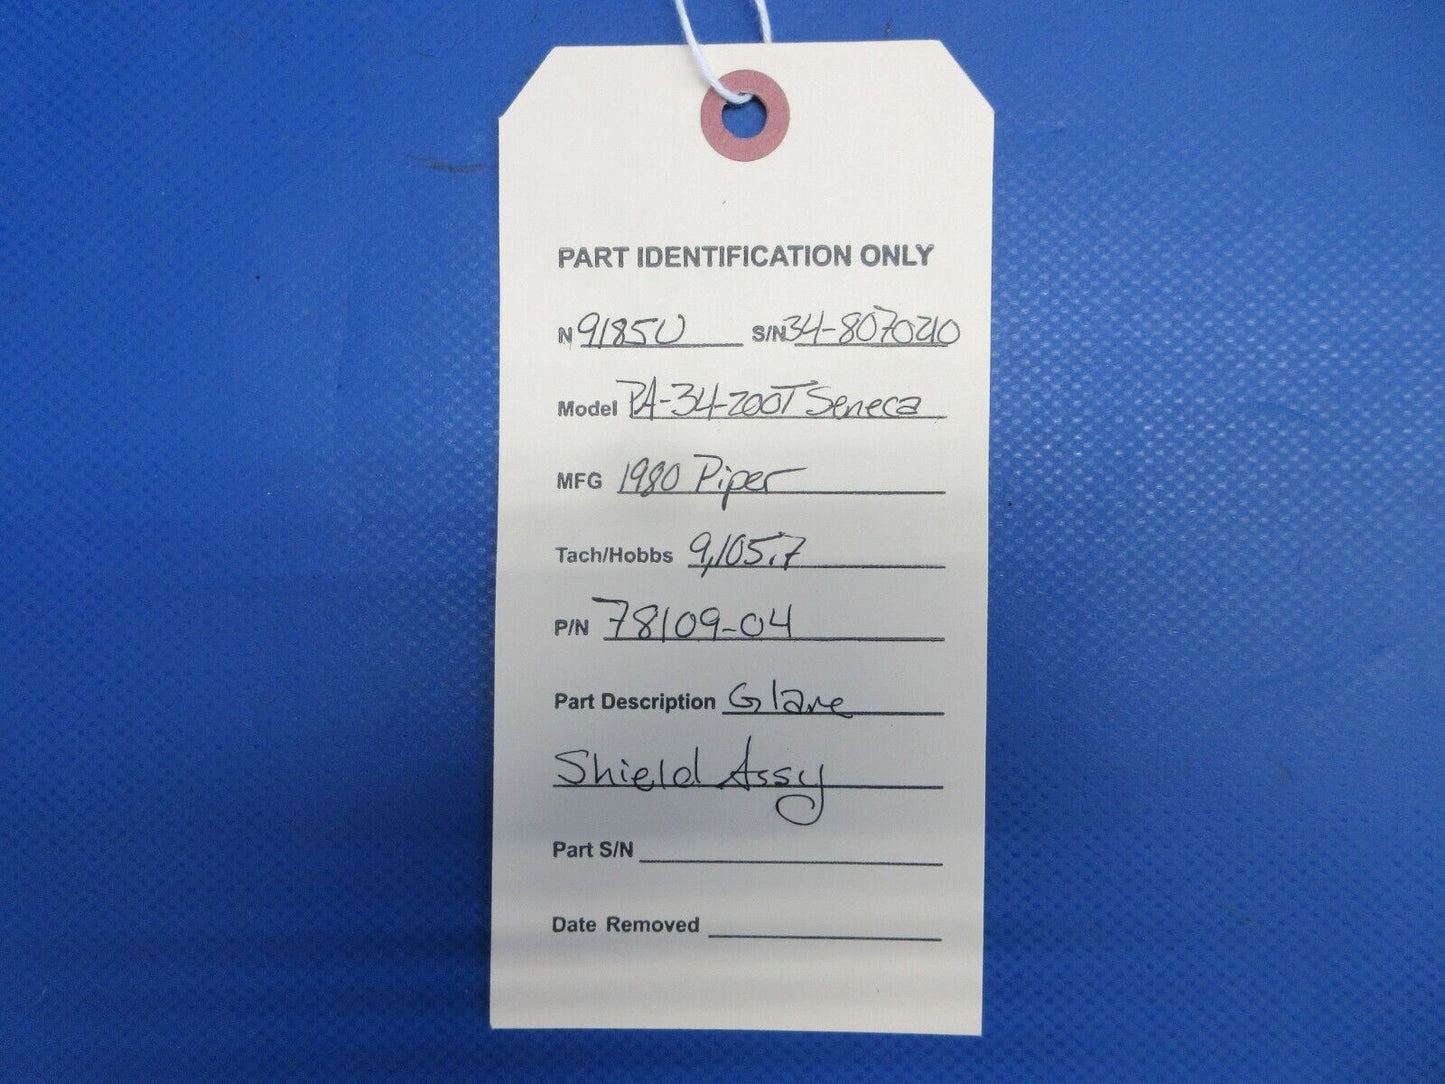 PART IDENTIFICATION ONLY
N 9185U S/N 34-8070210
Model PA-34-200T Seneca
MFG 1980 Piper
Tach/Hobbs 9,105.7
P/N 78109-04
Part Description Glare
Shield Assy
Part S/N
Date Removed